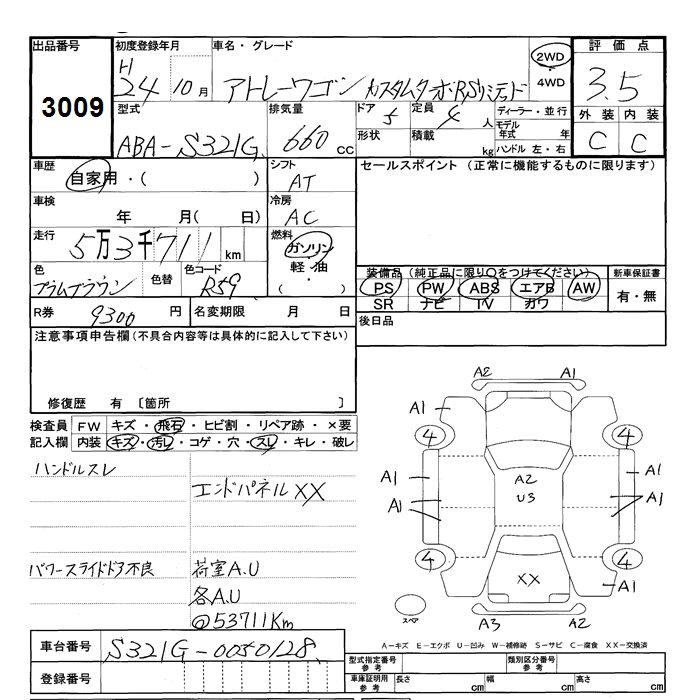 出品番号 3009
初度登録年月 H 24 10月
車名・グレード アトレーワゴン カスタムターボRSリミテッド
2WD ・ 4WD
評価点 3.5
型式 ABA-S321G
排気量 660 cc
ドア 5 定員 4 人
ディーラー・並行
モデル年式 年
形状 積載 kg ハンドル 左・右
外装 内装
C C
車歴 自家用・( )
シフト AT
セールスポイント (正常に機能するものに限ります)
車検 年 月( 日)
冷房 AC
走行 5万3千711 km
燃料 ガソリン
軽・油
・
( )
色 プラムブラウン 色替 色コード R59
装備品 (純正品に限り○をつけてください) 新車保証書
PS PW ABS エアB AW 有・無
SR ナビ TV カワ
R券 9300 円 名変期限 月 日
後日品
注意事項申告欄(不具合内容等は具体的に記入して下さい)
修復歴 有 〔箇所 〕
検査員 FW キズ・飛石・ヒビ割・リペア跡・×要
記入欄 内装 キズ・汚レ・コゲ・穴・スレ・キレ・破レ
ハンドルスレ
エンドパネルXX
パワースライドドア不良 荷室A.U
各A.U
@53711Km
A2 A1
A1
4 4
A1 A2 A1
U3
A1 A1
4 4
XX A1
スペア A3 A2
A-キズ E-エクボ U-凹み W-補修跡 S-サビ C-腐食 XX-交換済
車台番号 S321G-0050128
登録番号
型式指定番号 参考 類別区分番号 参考
車庫証明用 参考 長さ cm 幅 cm 高さ cm